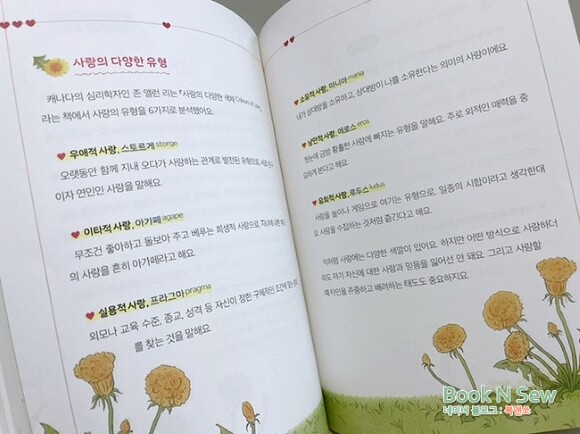 사랑의 다양한 유형
캐나다의 심리학자인 존 앨런 리는 『사랑의 다양한 색채 Colours of Love』
라는 책에서 사랑의 유형을 6가지로 분석했어요.
우애적 사랑, 스토르게 storge
오랫동안 함께 지내 오다가 사랑하는 관계로 발전된 유형으로,
이자 연인인 사랑을 말해요.
이타적 사랑, 아가페 agape
무조건 좋아하고 돌보아 주고 베푸는 희생적 사랑으로
의 사랑을 흔히 아가페라고 해요.
실용적 사랑, 프라그마 pragma
외모나 교육 수준, 종교, 성격 등 자신이 정한 구체적인 조건에 맞는
를 찾는 것을 말해요.
소유적 사랑, 마니아 mania
내가 상대방을 소유하고, 상대방이 나를 소유한다는 의미의 사랑이에요.
낭만적 사랑, 에로스 eros
첫눈에 금방 황홀한 사랑에 빠지는 유형을 말해요. 주로 외적인 매력을 중
요하게 본다고 해요.
유희적 사랑, 루두스 ludus
사랑을 놀이나 게임으로 여기는 유형으로, 일종의 시합이라고 생각한대
요. 사랑을 수집하는 것처럼 즐긴다고 해요.
이처럼 사랑에는 다양한 색깔이 있어요. 하지만 어떤 방식으로 사랑하더
라도 자기 자신에 대한 사랑과 믿음을 잃어선 안 돼요. 그리고 사랑할
때 타인을 존중하고 배려하는 태도도 중요하지요.
Book N Sew
네이버 블로그 : 북앤쏘